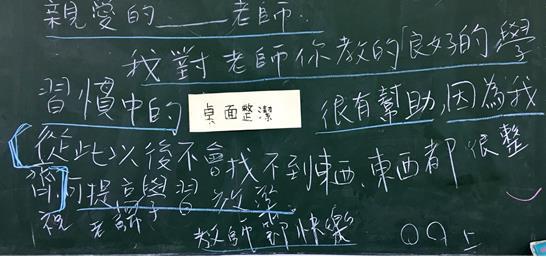 親愛的____老師：
我對老師你教的「良好的學
習慣中的 桌面整潔 很有幫助,因為我
從此以後不會找不到東西、東西都很整
齊,可提高學習效率。
祝 老師 教師節快樂 〇〇〇上